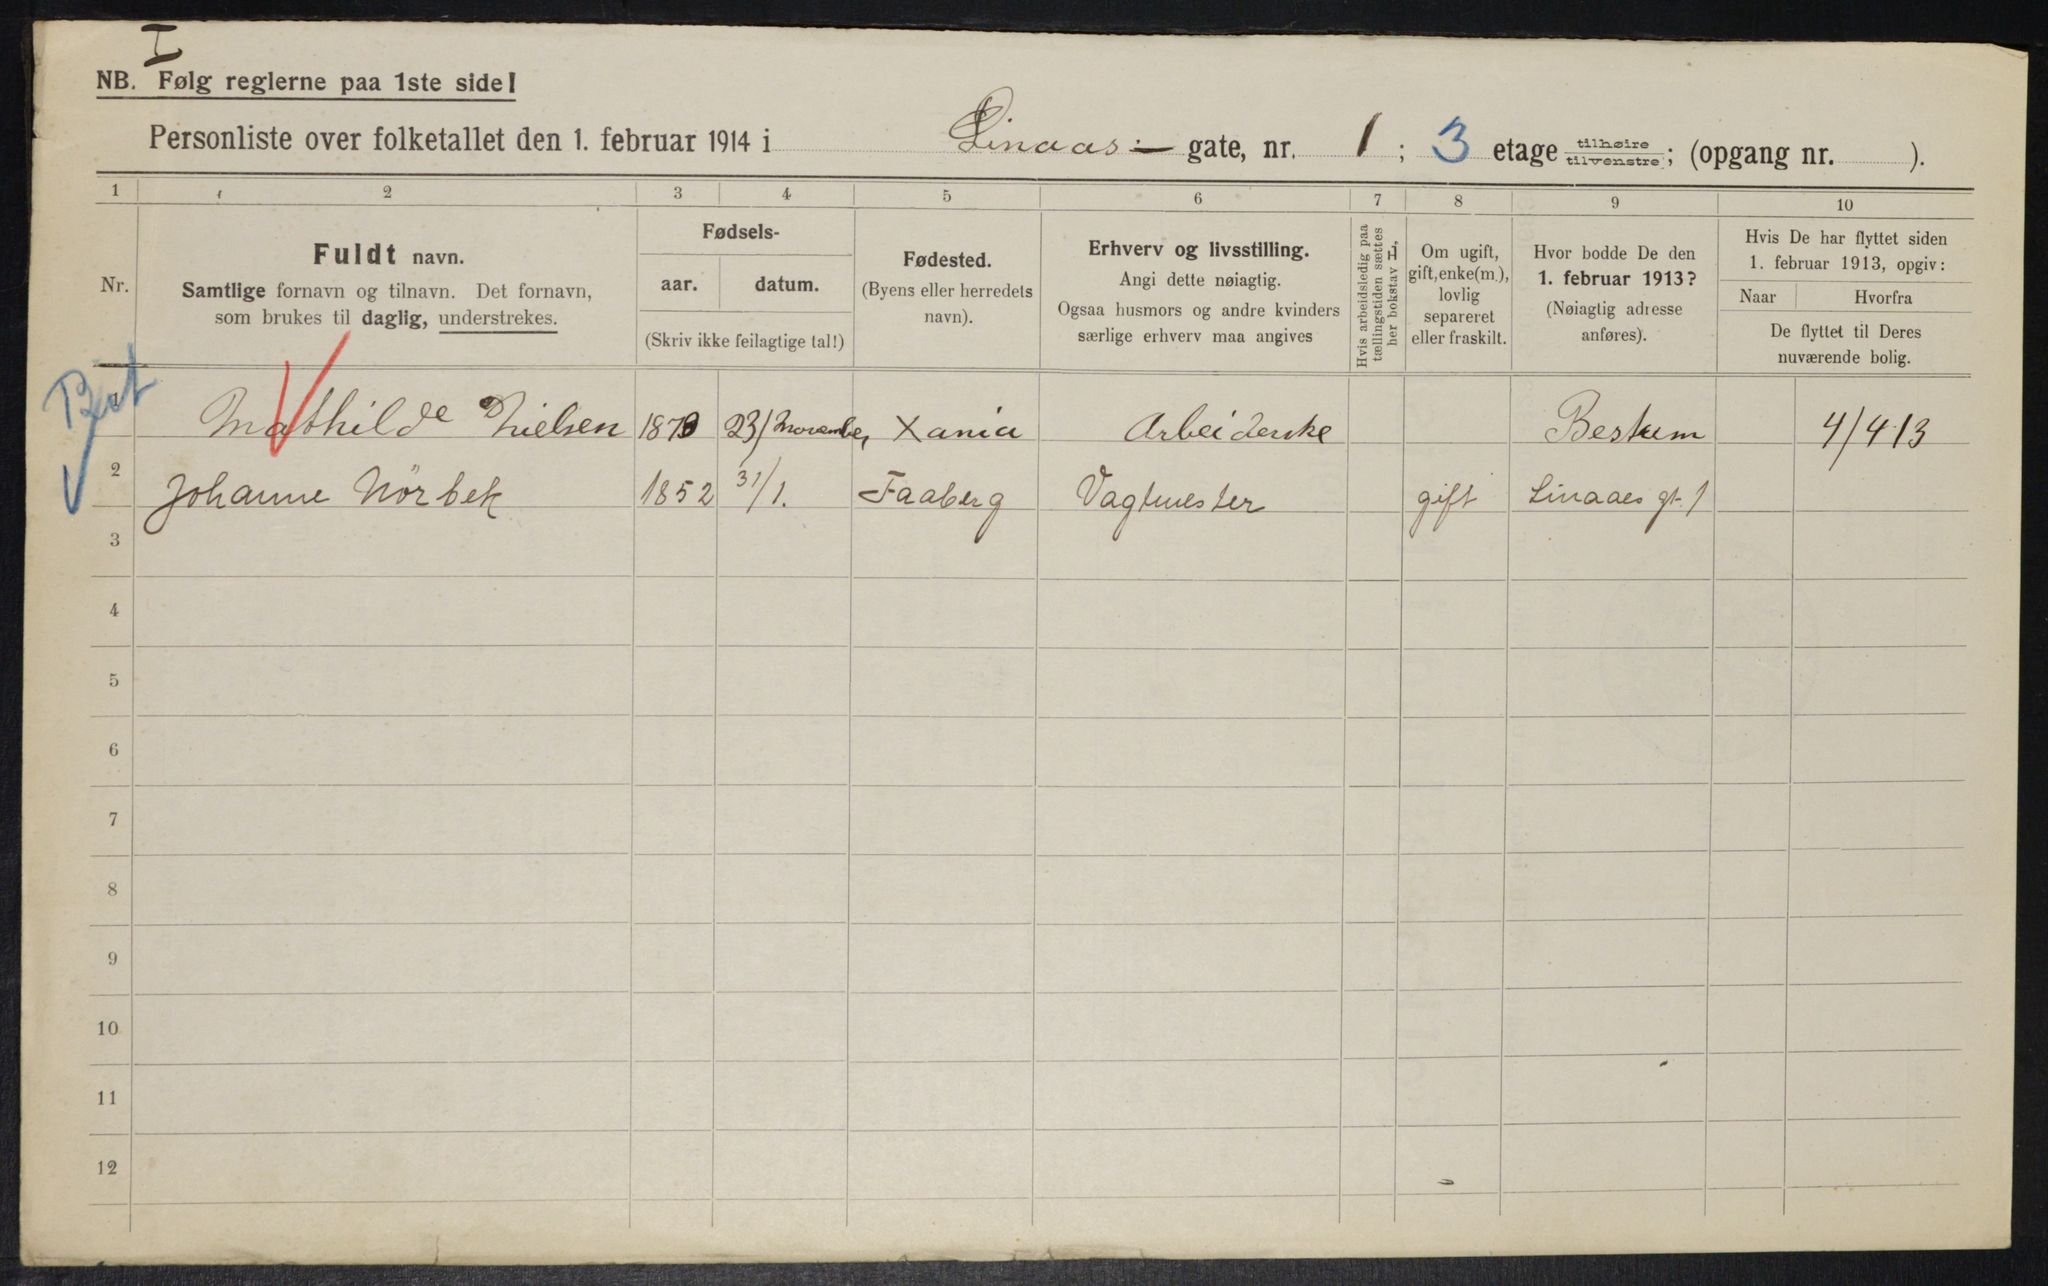 I
NB. Følg reglerne paa 1ste side!
Personliste over folketallet den 1. februar 1914 i Linaas:— gate, nr. 1; 3 etage tilhøire tilvenstre; (opgang nr. ).
1 2 3 4 5 6 7 8 9 10
Nr.
Fuldt navn.
Samtlige fornavn og tilnavn. Det fornavn,
som brukes til daglig, understrekes.
Fødsels-
aar. datum.
(Skriv ikke feilagtige tal!)
Fødested.
(Byens eller herredets
navn).
Erhverv og livsstilling.
Angi dette nøiagtig.
Ogsaa husmors og andre kvinders
særlige erhverv maa angives
Hvis arbeidsledig paa
tællingstiden sættes
her bokstav L,
Om ugift,
gift, enke(m.),
lovlig
separeret
eller fraskilt.
Hvor bodde De den
1. februar 1913?
(Nøiagtig adresse
anføres).
Hvis De har flyttet siden
1. februar 1913, opgiv:
Naar Hvorfra
De flyttet til Deres
nuværende bolig.
1 Mathilde Nielsen 23/November Xania Arbeiderske Bestum 4/4 13
2 Johanne Nörbek 1852 31/1. Faaberg Vagtmester gift Linaaes gt. 1
3
4
5
6
7
8
9
10
11
12